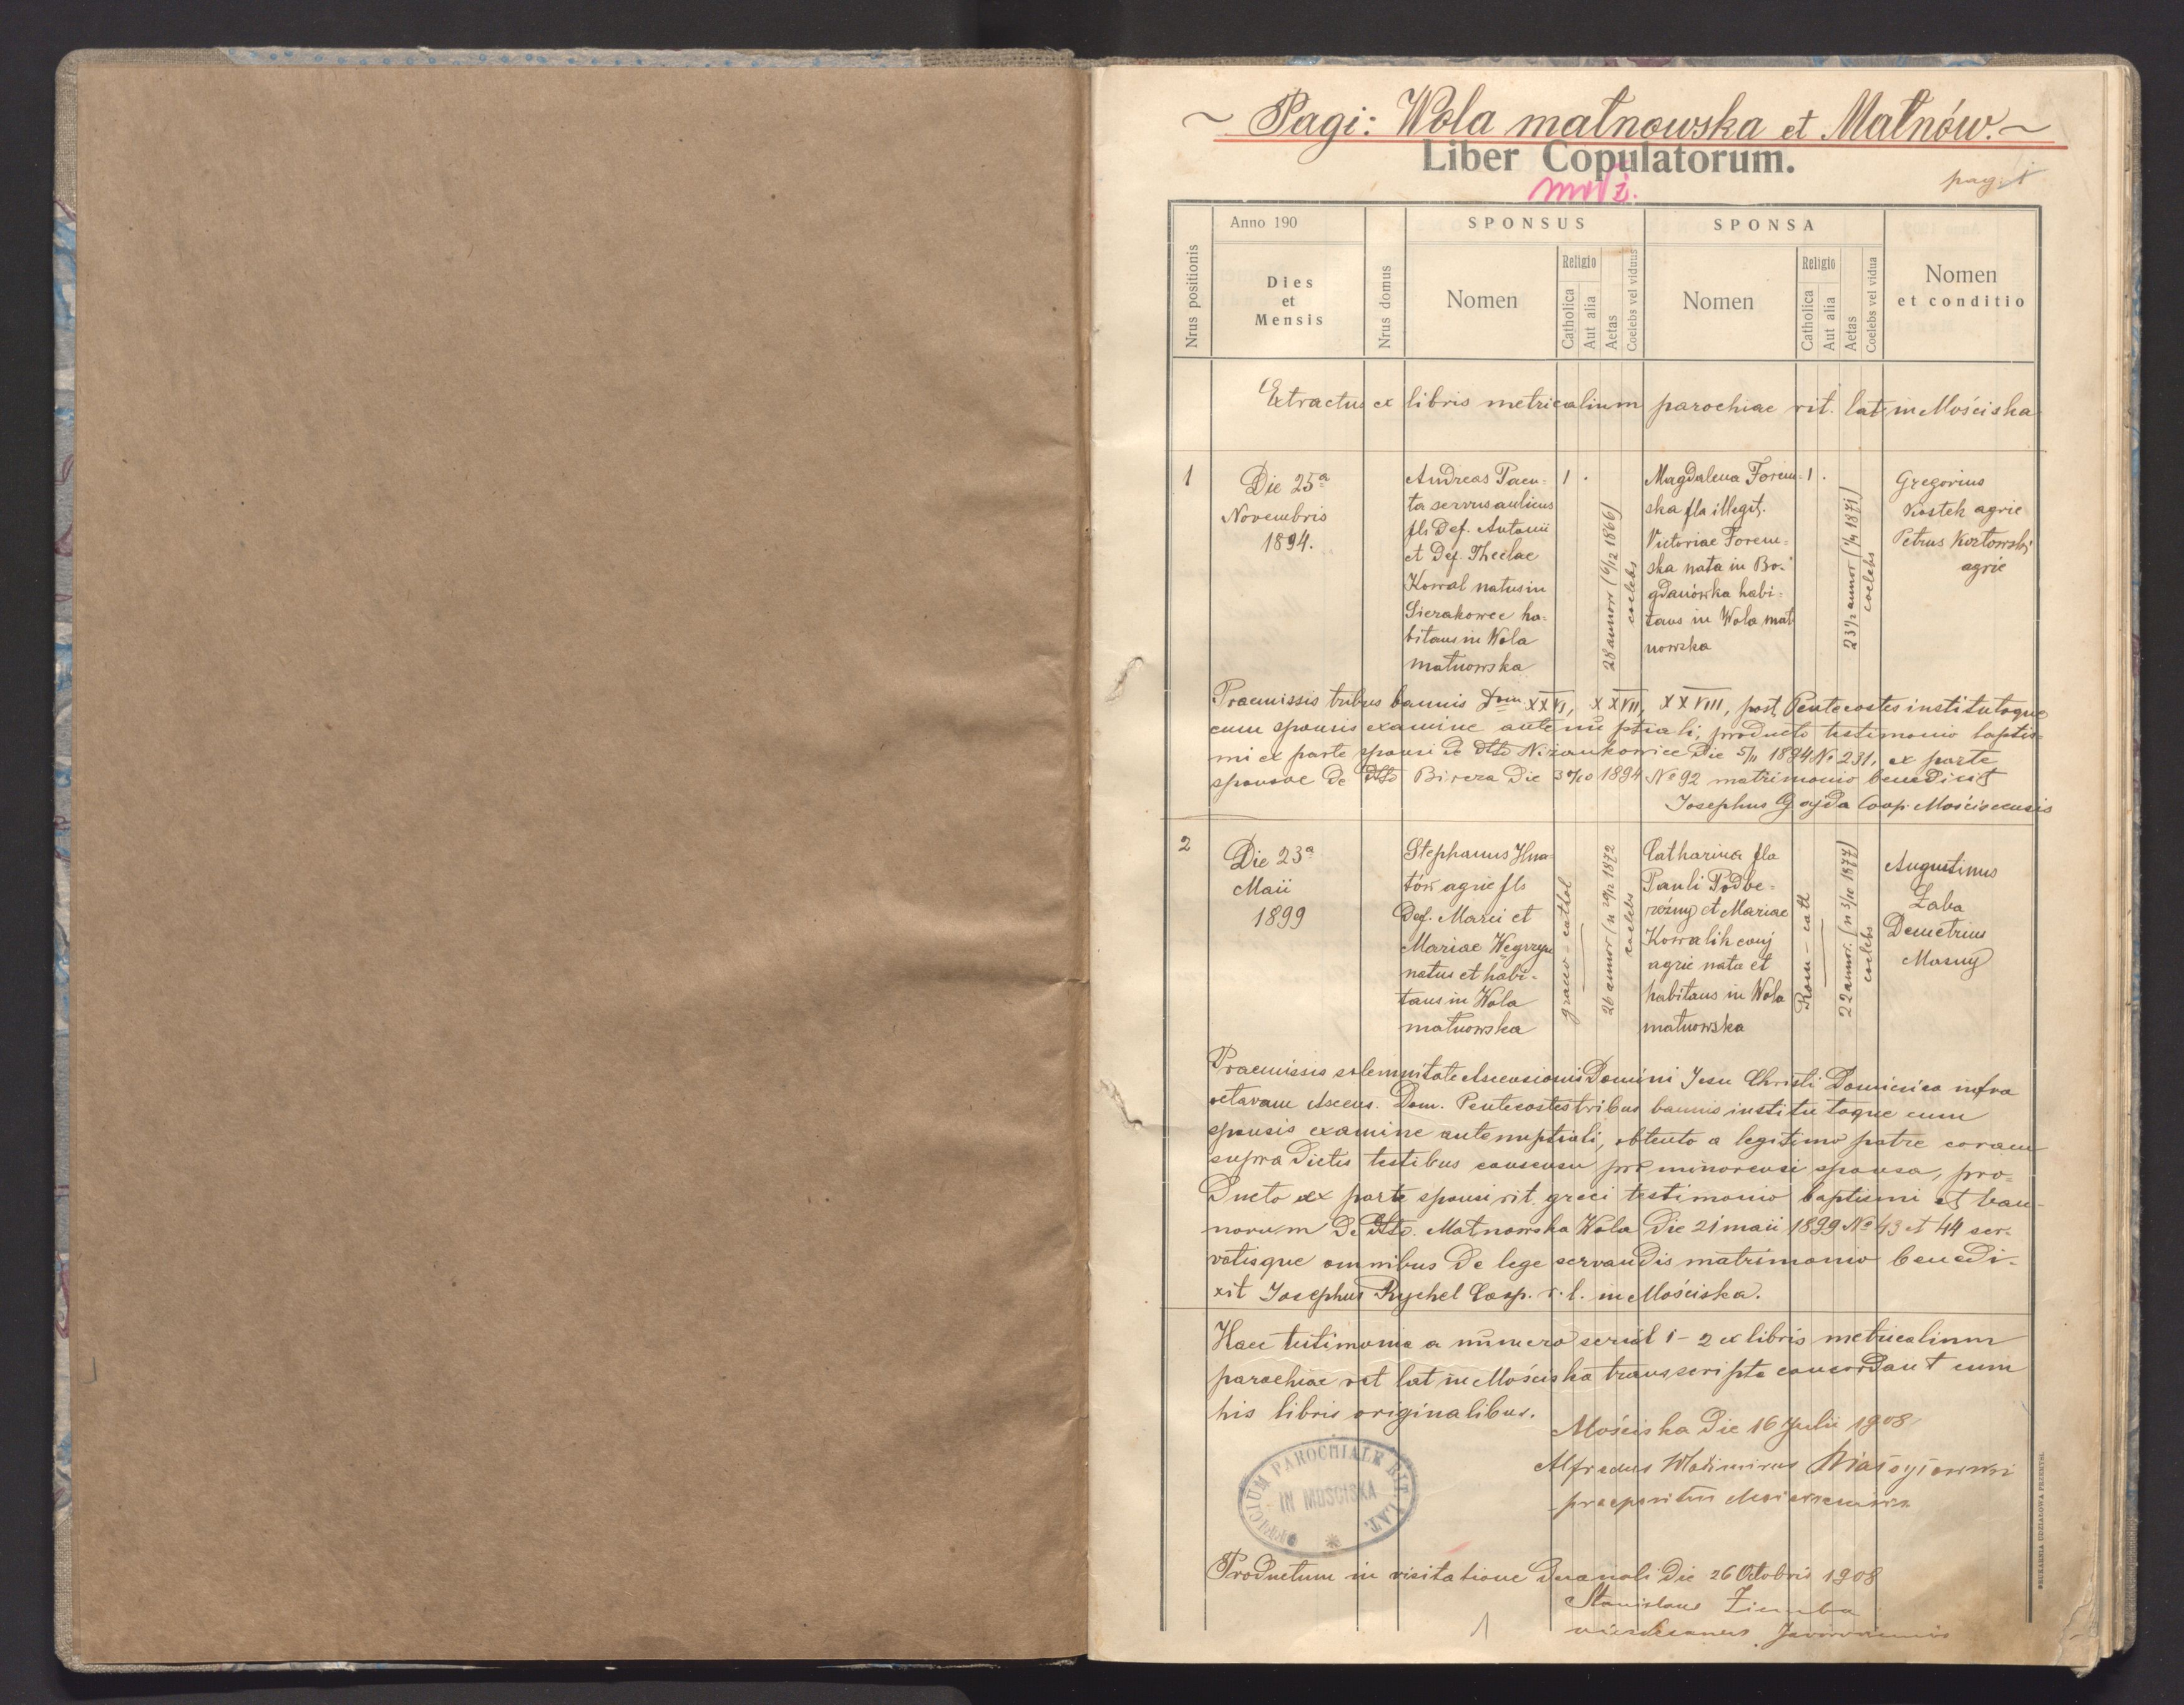 ~ Pagi: Wola małnowska et Małnów. ~
Liber Copulatorum.
pag. 1
Nrus positionis
Anno 190
Dies
et
Mensis
Nrus domus
SPONSUS
Nomen
Religio
Catholica
Aut alia
Aetas
Coelebs vel viduus
SPONSA
Nomen
Religio
Catholica
Aut alia
Aetas
Coelebs vel vidua
Nomen
et conditio
Extractus ex libris metricalium parochiae rit. lat. in Mościska
1
Die 25ª
Novembris
1894.
Andreas Pacu-
ta servus aulicus
fls Def. Antonii
et Def. Theclae
Kowal natus in
Sierakowce ha-
bitans in Wola
małnowska
1 .
28 annor (6/12 1866)
coelebs
Magdalena Forem-
ska fla illegit.
Victoriae Forem-
ska nata in Bo-
gdanówka habi-
tans in Wola mał
nowska
1 .
23 1/2 annor (1/4 1871)
coelebs
Gregorius
Kostek agric
Petrus Kozłowski
agric
Praemissis tribus bannis Dom XXVI, XXVII, XXVIII, post Pentecostes institutoque
cum sponsis examine ante nuptiali, producto testimonio baptis-
mi ex parte sponsi de dto Niżankowice Die 5/11 1894 № 231, ex parte
sponsae de dto Bircza Die 30/10 1894 № 92 matrimonio benedicit
Josephus Gajda Coop. Mościscensis
2
Die 23ª
Maii
1899
Stephanus Hna-
tów agric fls
Def. Marci et
Mariae Węgrzyn
natus et habi-
tans in Wola
małnowska
graeco-cathol
26 annor (n 29/12 1872
coelebs
Catharina fla
Pauli Podbe-
rożny et Mariae
Kowalik conj
agric nata et
habitans in Wola
małnowska
Rom-cath
22 annor. (n 3/10 1877)
coelebs
Augustinus
Żaba
Demetrius
Masny
Praemissis solemnitate Ascensionis Domini Jesu Christi Dominica infra
octavam Ascens. Dom. Pentecostes tribus bannis institutoque cum
sponsis examine antenuptiali, obtento a legitimo patre coram
supra dictis testibus consensu pro minorensi sponsa, pro-
ducto ex parte sponsi rit. graeci testimonio baptismi et ban-
norum De dto. Małnowska Wola die 21 maii 1899 № 43 et 44 ser-
vatisque omnibus de lege servandis matrimonio benedi-
xit Josephus Rychel Coop. r. l. in Mościska.
Haec testimonia a numero serial 1-2 ex libris metricalium
parochiae rit lat in Mościska transscripta concordant cum
his libris originalibus.
Mościska Die 16 Julii 1908
Alfredus Wladimirus
praepositus
OFFICIUM PAROCHIALE RIT. LAT.
IN MOSCISKA
Productum in visitatione Decanali Die 26 Octobris 1908
Stanislaus Ziemba
vicedecanus
1
DRUKARNIA UDZIAŁOWA PRZEMYŚL